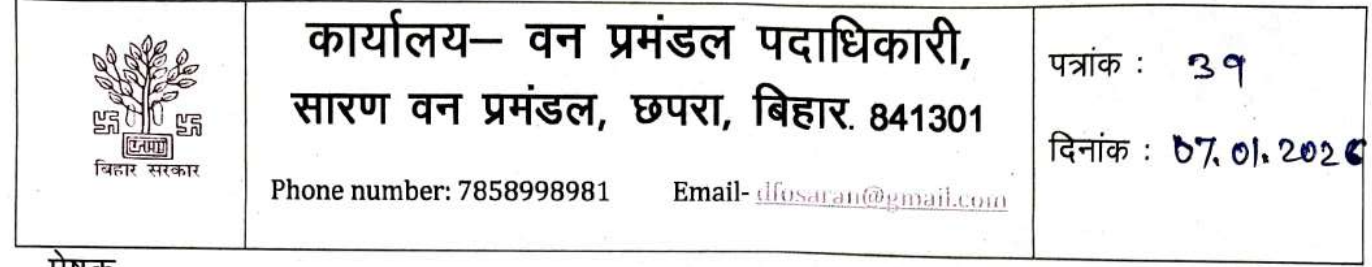 कार्यालय– वन प्रमंडल पदाधिकारी,
सारण वन प्रमंडल, छपरा, बिहार. 841301
Phone number: 7858998981 Email- dfosaran@gmail.com
बिहार सरकार
पत्रांक : 39
दिनांक : 07.01.2026